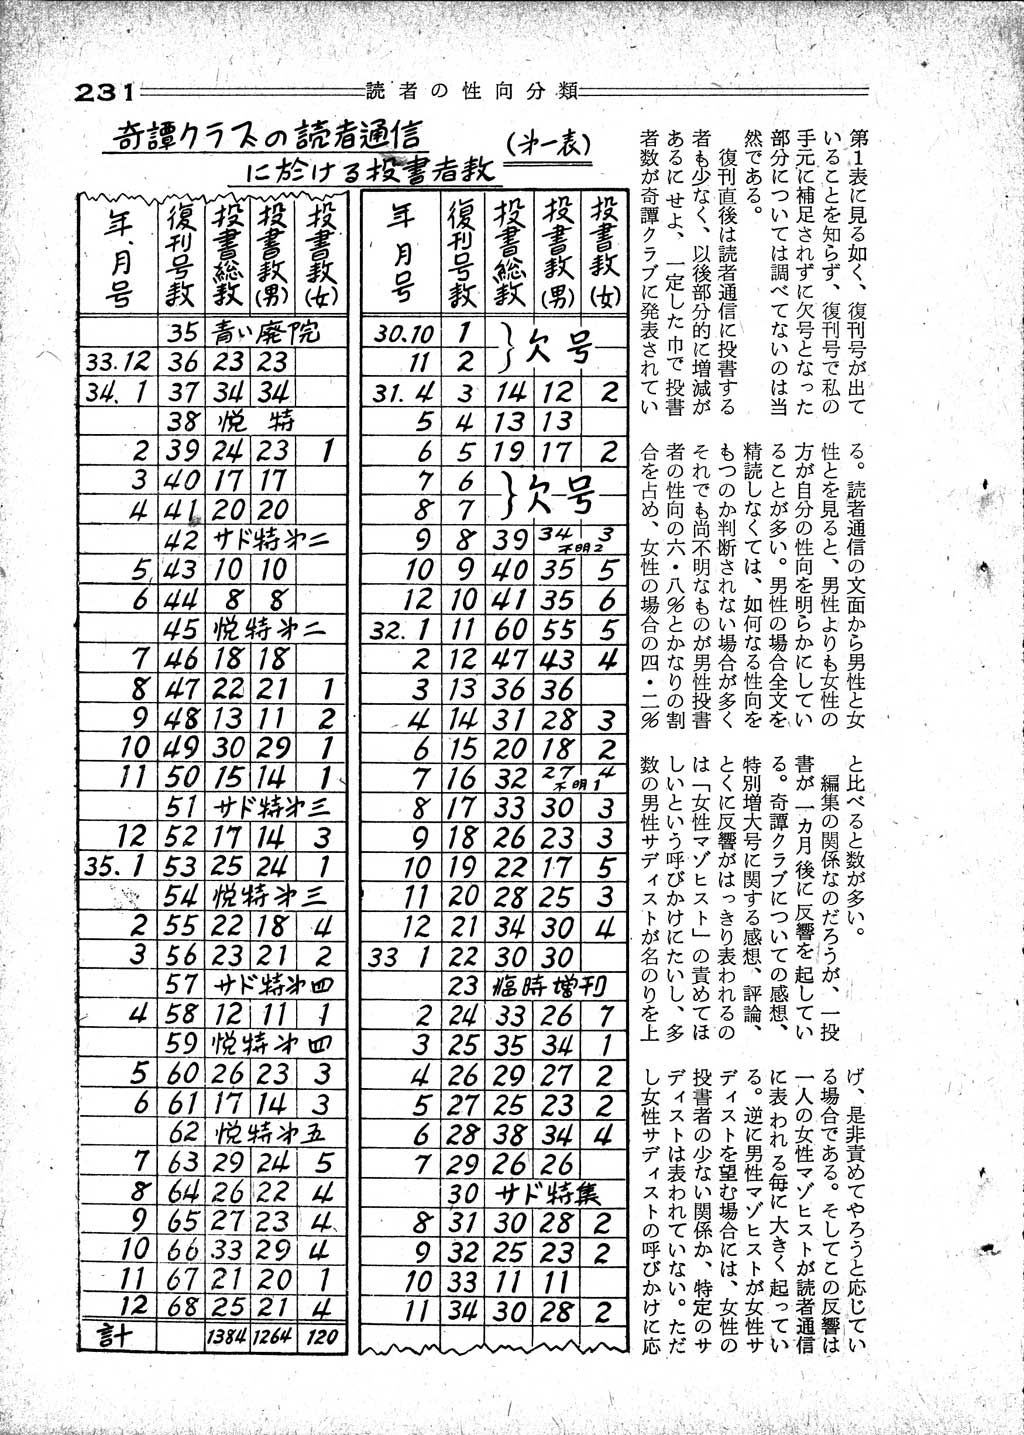 231
読者の性向分類
奇譚クラスの読者通信
に於ける投書者数
(オ一表)
年.月号 復刊号数 投書総数 投書数(男) 投書数(女)
30.10 1 欠号
11 2
31.4 3 14 12 2
5 4 13 13
6 5 19 17 2
7 6 欠号
8 7
9 8 39 34 3 不明2
10 9 40 35 5
12 10 41 35 6
32.1 11 60 55 5
2 12 47 43 4
3 13 36 36
4 14 31 28 3
6 15 20 18 2
7 16 32 27 4 不明1
8 17 33 30 3
9 18 26 23 3
10 19 22 17 5
11 20 28 25 3
12 21 34 30 4
33 1 22 30 30
23 臨時増刊
2 24 33 26 7
3 25 35 34 1
4 26 29 27 2
5 27 25 23 2
6 28 38 34 4
7 29 26 26
30 サド特集
8 31 30 28 2
9 32 25 23 2
10 33 11 11
11 34 30 28 2
年.月号 復刊号数 投書総数 投書数(男) 投書数(女)
35 青い廃院
33.12 36 23 23
34.1 37 34 34
38 悦特
2 39 24 23 1
3 40 17 17
4 41 20 20
42 サド特オ二
5 43 10 10
6 44 8 8
45 悦特オ二
7 46 18 18
8 47 22 21 1
9 48 13 11 2
10 49 30 29 1
11 50 15 14 1
51 サド特オ三
12 52 17 14 3
35.1 53 25 24 1
54 悦特オ三
2 55 22 18 4
3 56 23 21 2
57 サド特オ四
4 58 12 11 1
59 悦特オ四
5 60 26 23 3
6 61 17 14 3
62 悦特オ五
7 63 29 24 5
8 64 26 22 4
9 65 27 23 4
10 66 33 29 4
11 67 21 20 1
12 68 25 21 4
計 1384 1264 120
第1表に見る如く、復刊号が出て
いることを知らず、復刊号で私の
手元に補足されずに欠号となった
部分については調べてないのは当
然である。
復刊直後は読者通信に投書する
者も少なく、以後部分的に増減が
あるにせよ、一定した巾で投書
者数が奇譚クラブに発表されてい
る。読者通信の文面から男性と女
性とを見ると、男性よりも女性の
方が自分の性向を明らかにしてい
ることが多い。男性の場合全文を
精読しなくては、如何なる性向を
もつのか判断されない場合が多く
それでも尚不明なものが男性投書
者の性向の六・八％とかなりの割
合を占め、女性の場合の四・二％
と比べると数が多い。
編集の関係なのだろうが、一投
書が一カ月後に反響を起してい
る。奇譚クラブについての感想、
特別増大号に関する感想、評論、
とくに反響がはっきり表われるの
は「女性マゾヒスト」の責めてほ
しいという呼びかけにたいし、多
数の男性サディストが名のりを上
げ、是非責めてやろうと応じてい
る場合である。そしてこの反響は
一人の女性マゾヒストが読者通信
に表われる毎に大きく起ってい
る。逆に男性マゾヒストが女性サ
ディストを望む場合には、女性の
投書者の少ない関係か、特定のサ
ディストは表われていない。ただ
し女性サディストの呼びかけに応